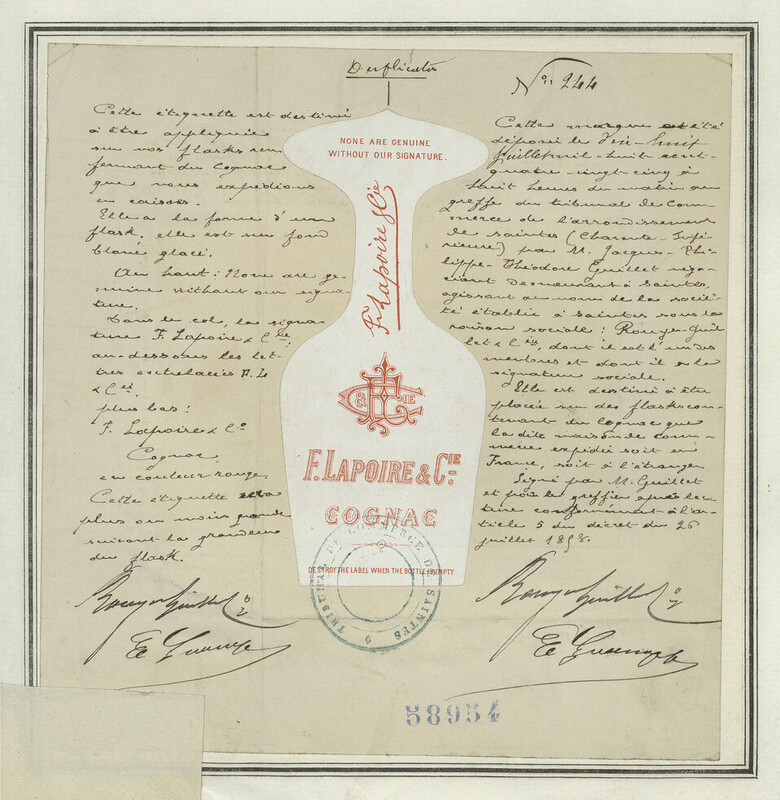 Duplicata
No. 244
Cette étiquette est destiné
à être appliquée
sur nos flasks ren
fermant du Cognac
que nous expédions
en caisses.
Elle a la forme d'un
flask. elle est sur fond
blanc glacé.
En haut: None are ge-
nuine without our signa-
ture.
Dans le col, la signa-
ture F. Lapoire & Cie;
au-dessous les let-
tres entrelacées F. L.
& Cie
plus bas:
F. Lapoire & Co
Cognac
en couleur rouge.
Cette étiquette sera
plus ou moins grande
suivant la grandeur
du flask.
NONE ARE GENUINE
WITHOUT OUR SIGNATURE.
F. Lapoire & Cie
& CIE
F. LAPOIRE & CIE
COGNAC
DESTROY THE LABEL WHEN THE BOTTLE IS EMPTY
TRIBUNAL DE COMMERCE DE SAINTES
Cette marque a été
déposée le dix-huit
Juillet mil-huit cent-
quatre-vingt cinq à
huit heures du matin au
greffe du tribunal de Com-
merce de l'arrondissement
de Saintes (Charente-Infé-
rieure) par M. Jacques-Phi-
lippe-Théodore Guillet négo-
ciant demeurant à Saintes
agissant au nom de la socié-
té établie à Saintes sous la
raison sociale: Rouyer-Guil-
let & Cie, dont il est l'un des
membres et dont il a la
signature sociale.
Elle est destiné à être
placée sur des flasks con-
tenant du Cognac que
la dite maison de Com-
merce expédie soit en
France, soit à l'étranger.
Signé par M. Guillet
et par le greffier après lec-
ture conformément à l'ar-
ticle 5 du décret du 26
juillet 1858.
Rouyer Guillet & Co
Rouyer Guillet & Co
58954